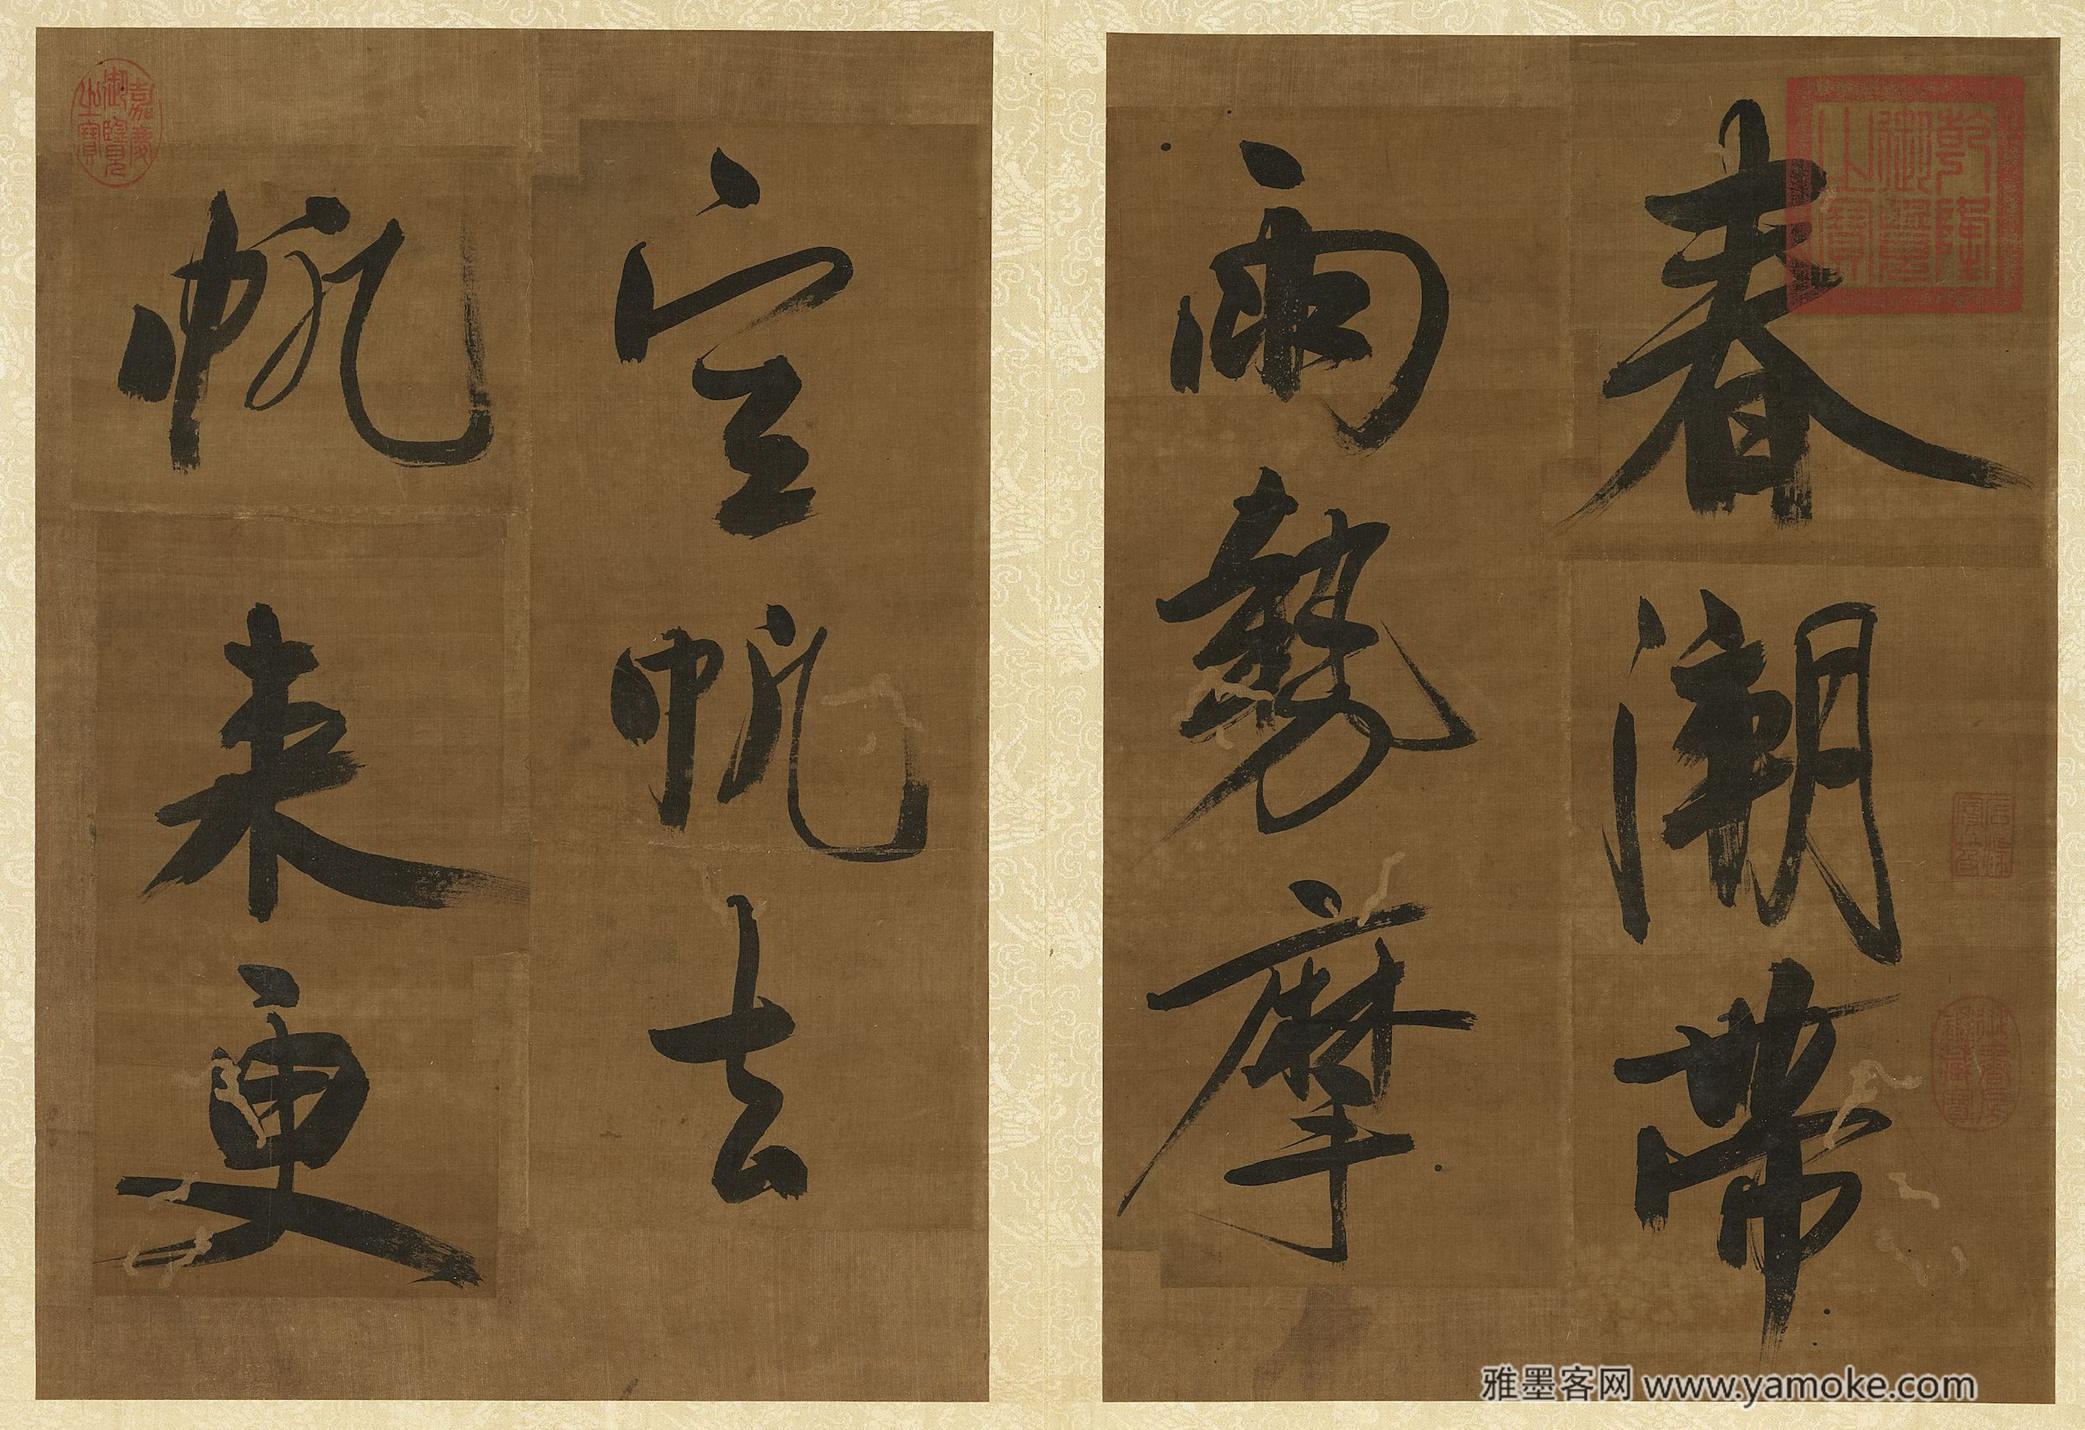 春潮帶
雨勢摩
空帆去
帆來更
乾隆御覽之寶
嘉慶御覽之寶
雅墨客网 www.yamoke.com